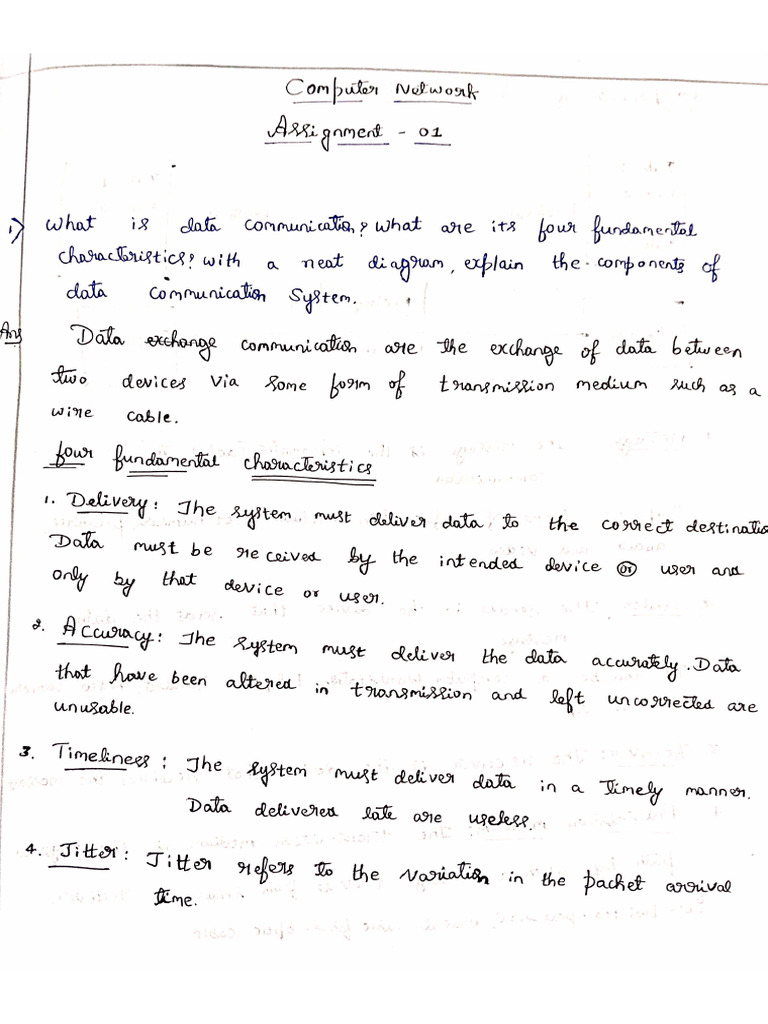 Computer Network
Assignment - 01
1) What is data communication? What are its four fundamental
characteristics? with a neat diagram, explain the components of
data communication System.
Ans Data exchange communication are the exchange of data between
two devices via some form of transmission medium such as a
wire cable.
four fundamental characteristics
1. Delivery: The system must deliver data to the correct destinatio
Data must be received by the intended device or user and
only by that device or user.
2. Accuracy: The system must deliver the data accurately. Data
that have been altered in transmission and left uncorrected are
unusable.
3. Timeliness: The system must deliver data in a timely manner.
Data delivered late are useless.
4. Jitter: Jitter refers to the variation in the packet arrival
time.